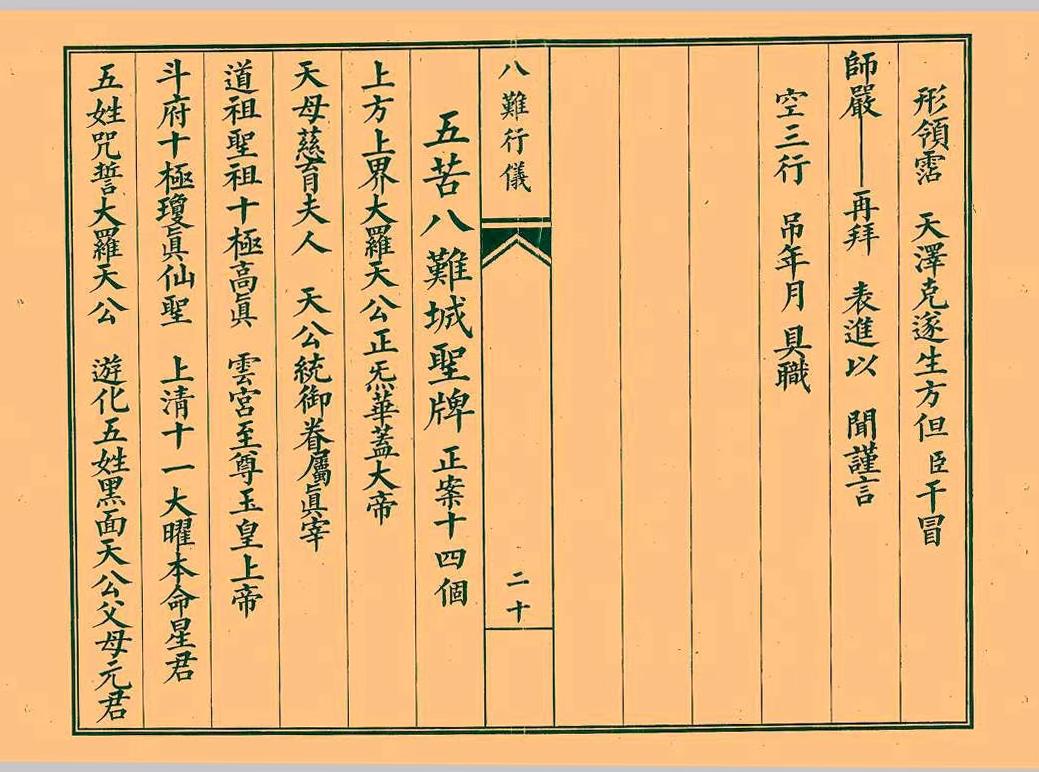 形領霑　天澤克遂生方但臣干冒
師嚴——再拜　表進以　聞謹言
空三行　吊年月具職
八難行儀
二十
五苦八難城聖牌　正案十四個
上方上界大羅天公正炁華蓋大帝
天母慈育夫人　天公統御眷屬眞宰
道祖聖祖十極高眞　雲宮至尊玉皇上帝
斗府十極瓊眞仙聖　上清十一大曜本命星君
五姓咒誓大羅天公　遊化五姓黑面天公父母元君